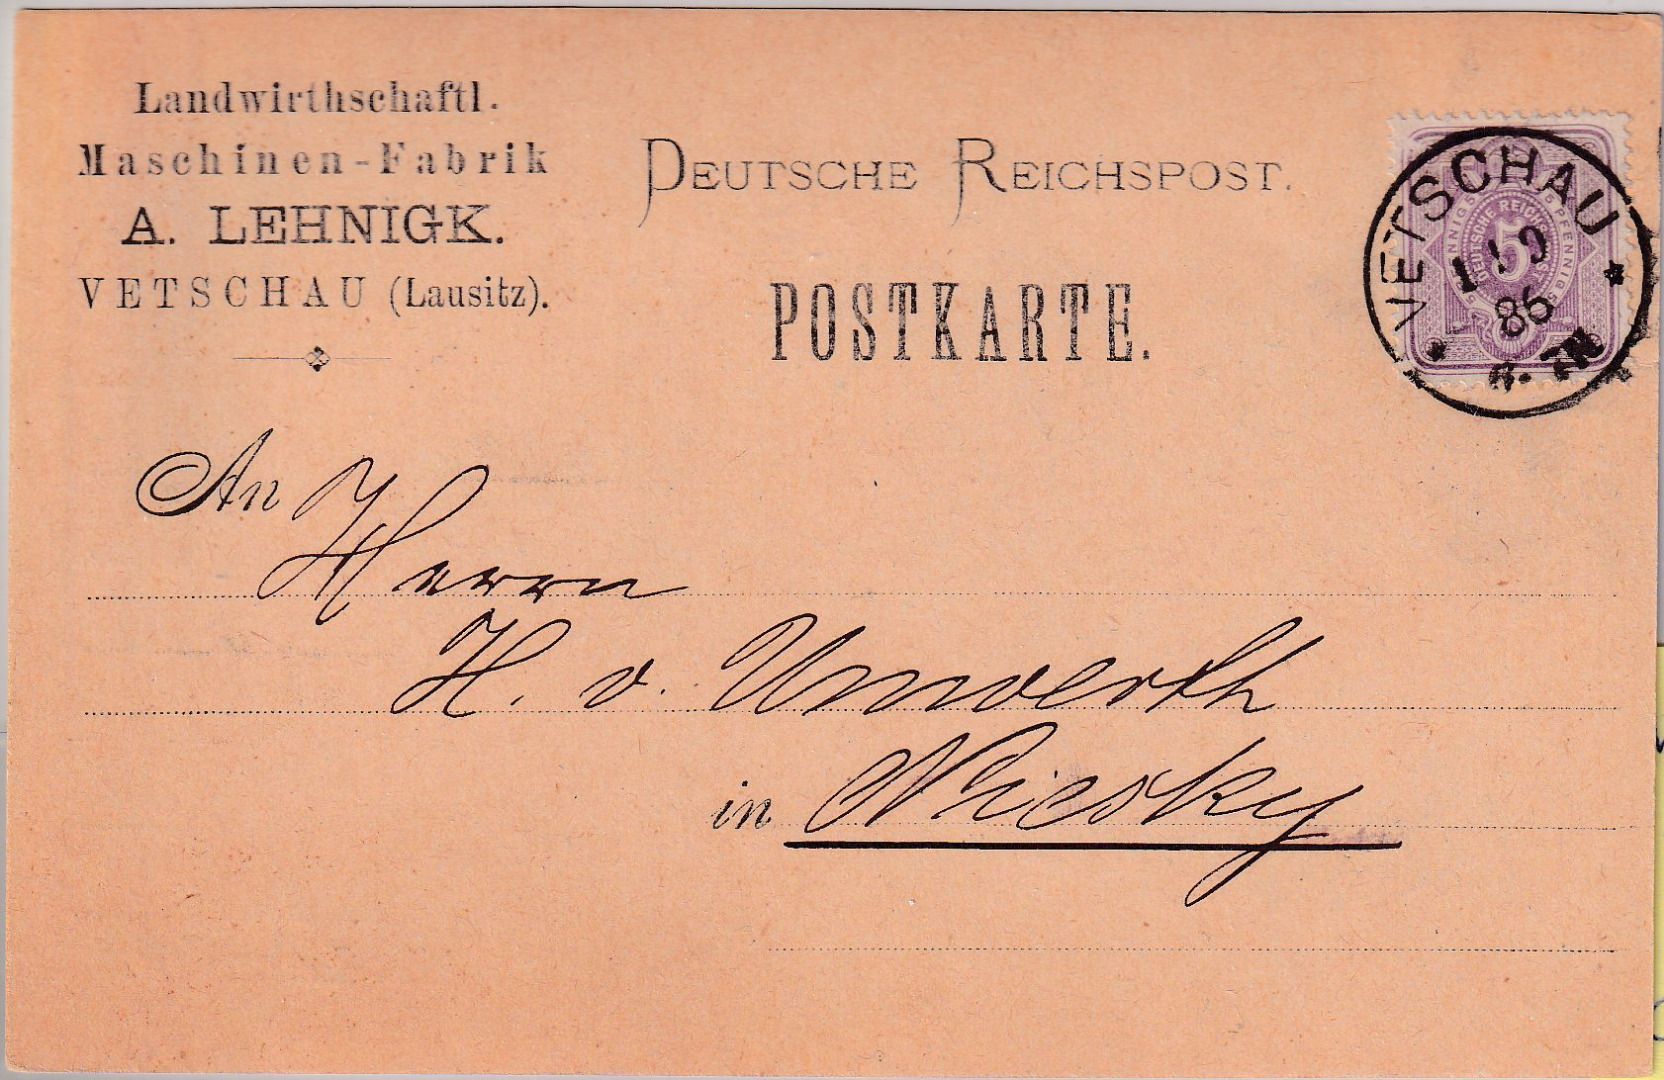 Landwirthschaftl.
Maschinen-Fabrik
A. LEHNIGK.
VETSCHAU (Lausitz).
DEUTSCHE REICHSPOST.
POSTKARTE.
VETSCHAU
86
DEUTSCHE REICHS
5
PFENNIG
An
Herrn
H. v. Unwerth
in Niesky